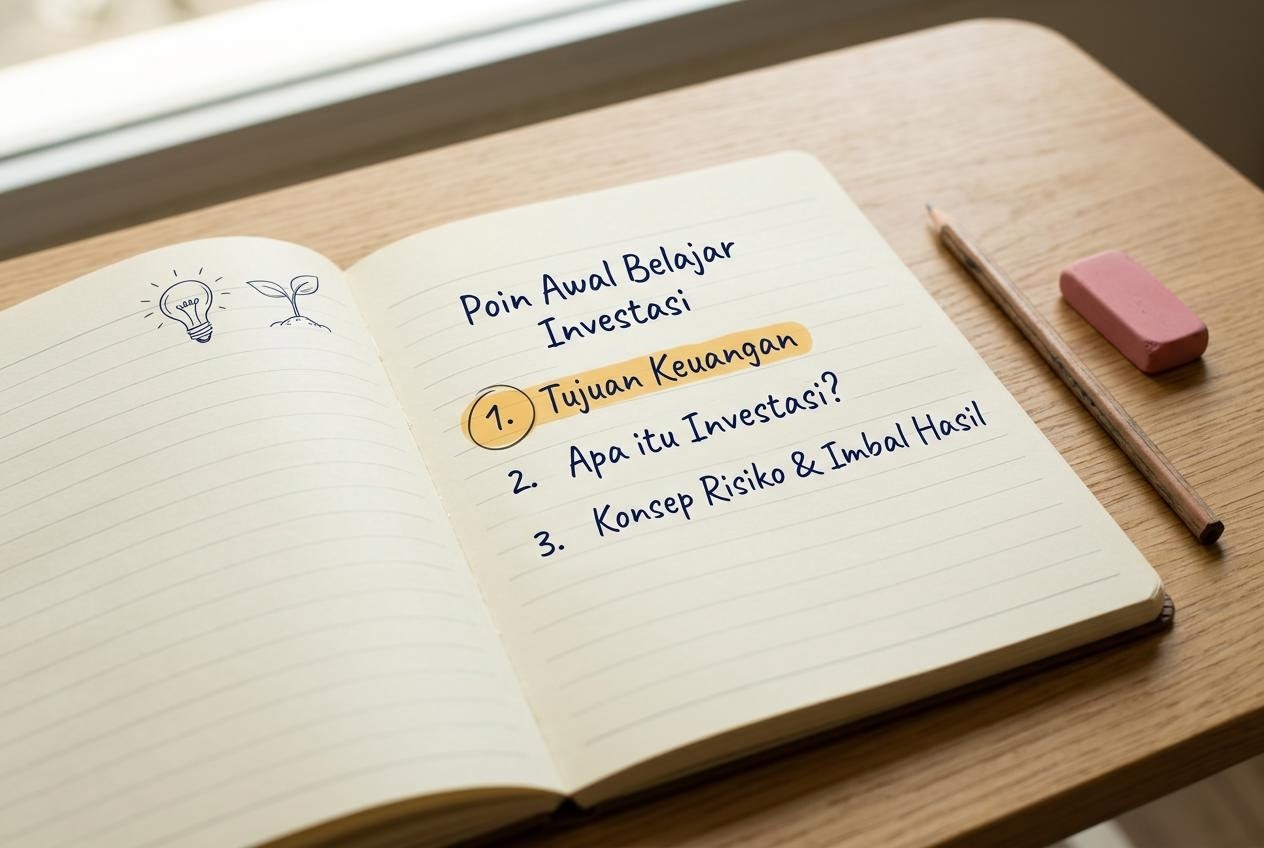 Poin Awal Belajar
Investasi
1. Tujuan Keuangan
2. Apa itu Investasi?
3. Konsep Risiko & Imbal Hasil